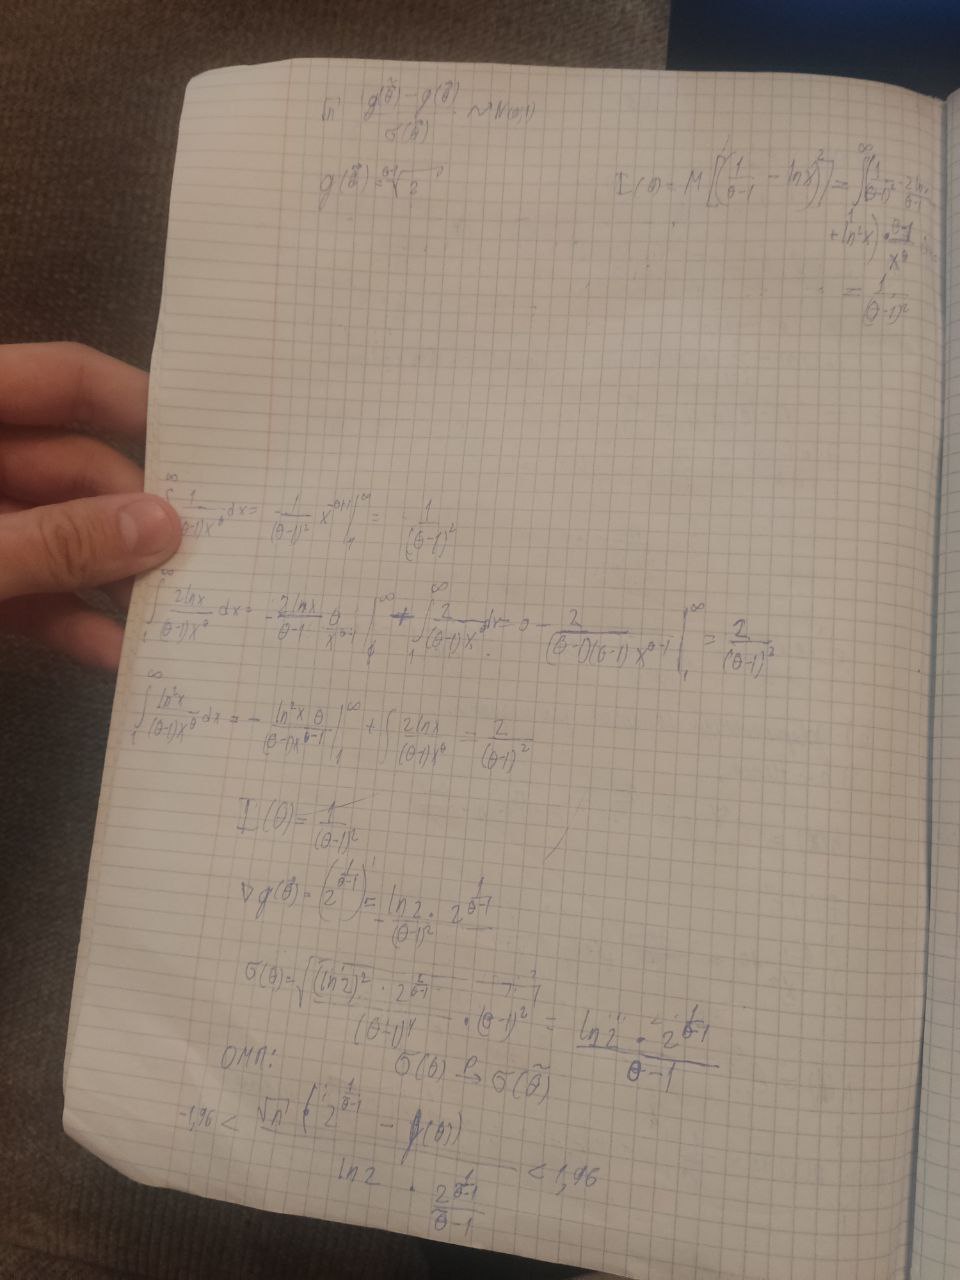 √n (g(θ̃) − g(θ))/σ(θ̃) ~ N(0,1)
g(θ̃) = ᶿ⁻¹√2
I(θ) = M[(1/(θ-1) − ln x)²] = ∫₁^∞ (1/(θ-1)² − 2ln x/(θ-1)
+ ln²x) · (θ-1)/x^θ
= 1/(θ-1)²
∫ 1/((θ-1)x^θ) dx = − 1/(θ-1)² x^(-θ+1) |₁^∞ = 1/(θ-1)²
∫₁^∞ 2lnx/((θ-1)x^θ) dx = − 2lnx/(θ-1) θ/x^(θ-1) |₁^∞ + ∫₁^∞ 2/((θ-1)x^θ) dx = 0 − 2/((θ-1)(θ-1)x^(θ-1)) |₁^∞ = 2/(θ-1)²
∫₁^∞ ln²x/((θ-1)x^θ) dx = − ln²x θ/((θ-1)x^(θ-1)) |₁^∞ + ∫ 2lnx/((θ-1)x^θ) = 2/(θ-1)²
I(θ) = 1/(θ-1)²
∇g(θ) = (2^(1/(θ-1)))' = − ln2/(θ-1)² · 2^(1/(θ-1))
σ(θ) = √((ln2)² · 2^(2/(θ-1))/(θ-1)⁴ · (θ-1)²) = ln2 · 2^(1/(θ-1))/(θ-1)
ОМП: σ(θ) →ᴾ σ(θ̃)
-1,96 < √n (2^(1/(θ̃-1)) − g(θ))/(ln2 · 2^(1/(θ̃-1))/(θ̃-1)) < 1,96